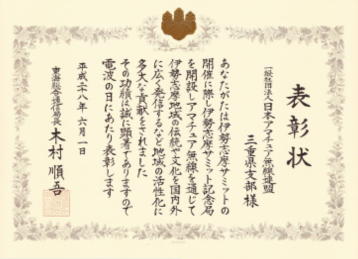 表彰状
一般社団法人日本アマチュア無線連盟
三重県支部様
あなたがたは伊勢志摩サミットの
開催に際し伊勢志摩サミット記念局
を開設しアマチュア無線を通じて
伊勢志摩地域の伝統や文化を国内外
に広く発信するなど地域の活性化に
多大な貢献をされました
その功績は誠に顕著でありますので
電波の日にあたり表彰します
平成二八年六月一日
東海総合通信局長 木村順吾